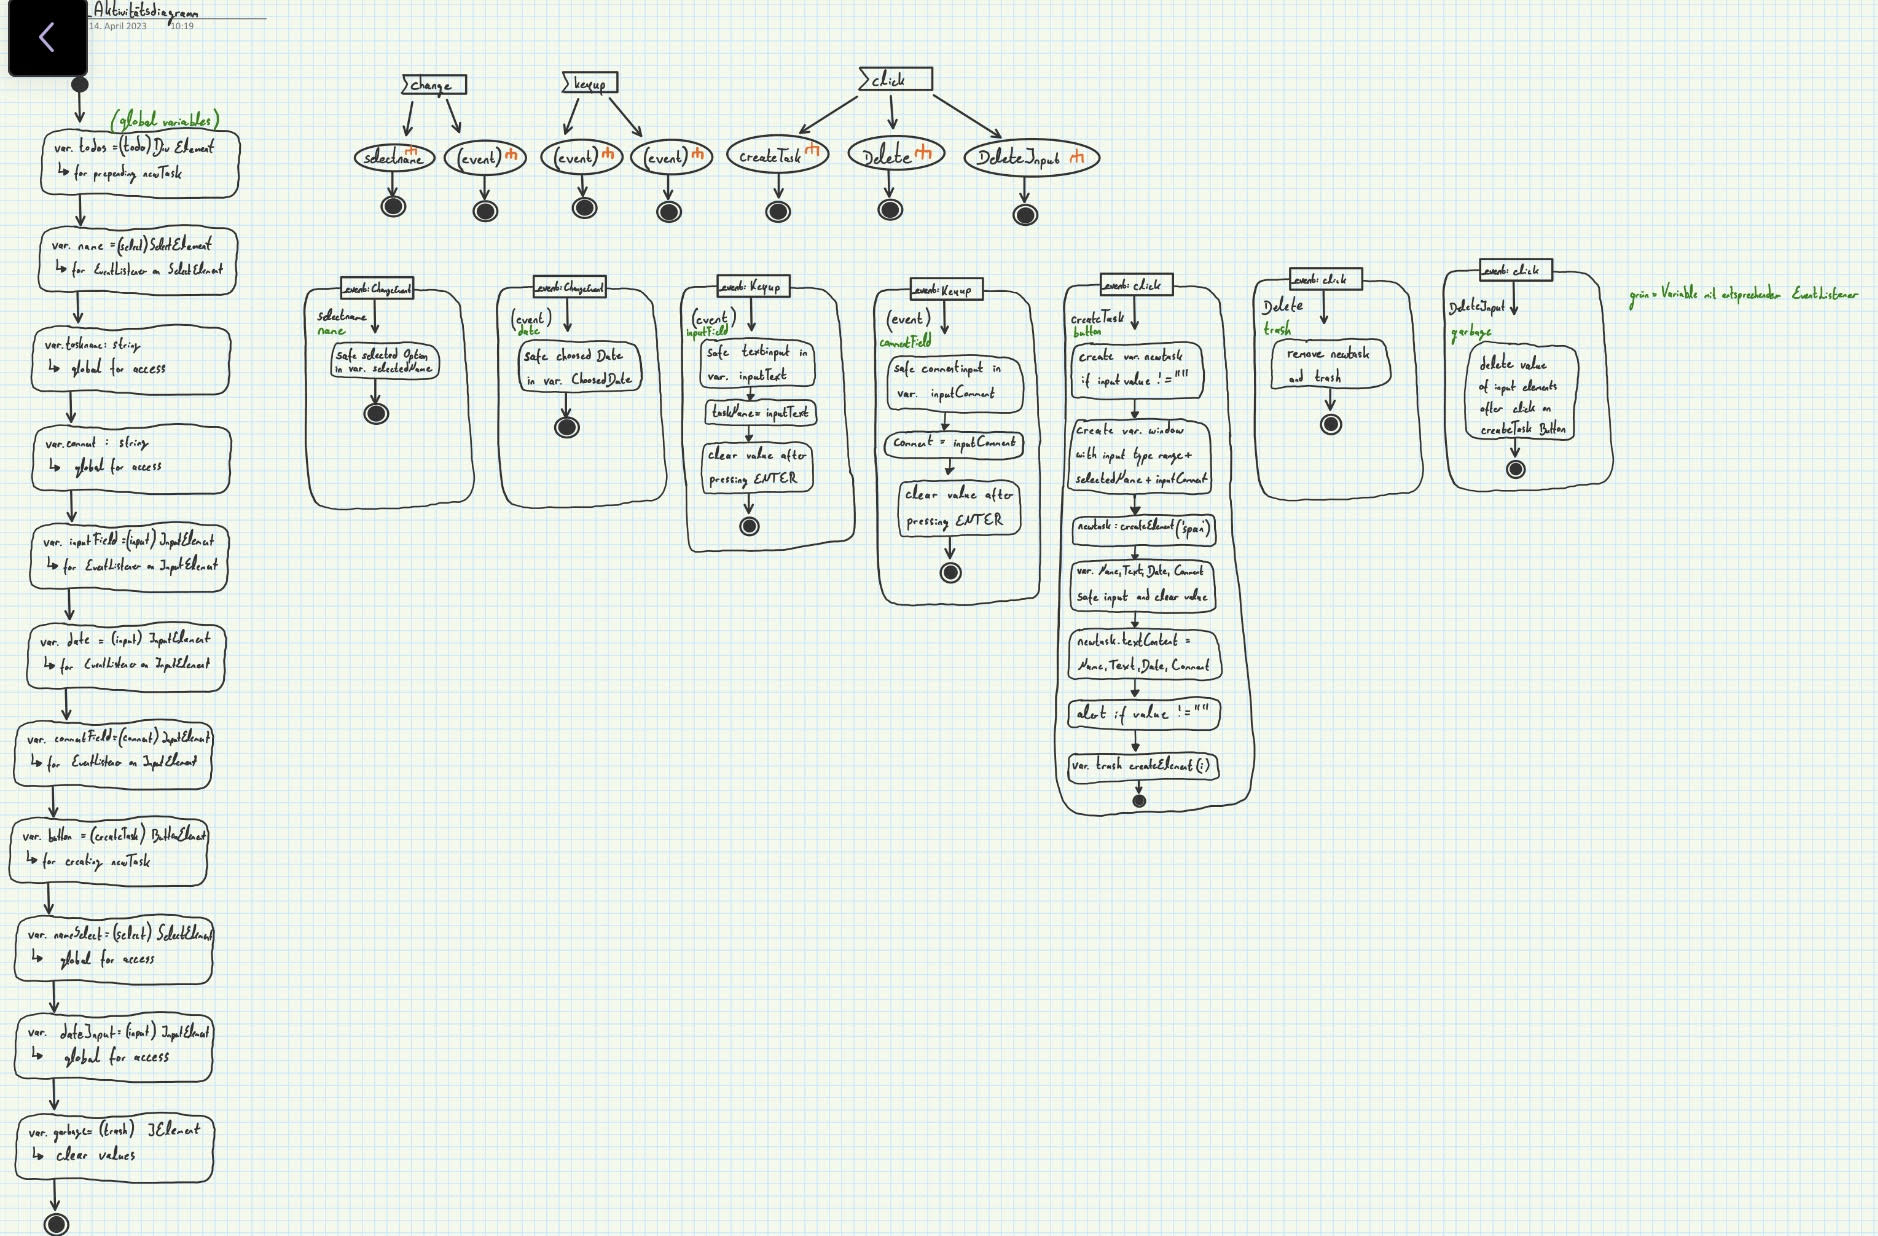 Aktivitätsdiagramm
14. April 2023 10:19
(global variables)
var. todos = (todo) Div Element
↳ for prepending newTask
var. name = (select) SelectElement
↳ for EventListener on SelectElement
var. taskname: string
↳ global for access
var. comment : string
↳ global for access
var. inputField = (input) InputElement
↳ for EventListener on InputElement
var. date = (input) InputElement
↳ for EventListener on InputElement
var. commentField = (comment) InputElement
↳ for EventListener on InputElement
var. button = (createTask) ButtonElement
↳ for creating newTask
var. nameSelect = (select) SelectElement
↳ global for access
var. dateInput = (input) InputElement
↳ global for access
var. garbage = (trash) IElement
↳ clear values
change
selectname
(event)
keyup
(event)
(event)
click
createTask
Delete
DeleteInput
event: ChangeEvent
selectname
name
safe selected Option
in var. selectedName
event: ChangeEvent
(event)
date
safe choosed Date
in var. ChoosedDate
event: Keyup
(event)
inputField
safe textinput in
var. inputText
taskName = inputText
clear value after
pressing ENTER
event: Keyup
(event)
commentField
safe commentinput in
var. inputComment
Comment = inputComment
clear value after
pressing ENTER
event: click
createTask
button
create var. newtask
if input value != ""
Create var. window
with input type range +
selectedName + inputComment
newtask: createElement ('span')
var. Name, Text, Date, Comment
safe input and clear value
newtask.textContent =
Name, Text, Date, Comment
alert if value != ""
var. trash createElement (i)
event: click
Delete
trash
remove newtask
and trash
event: click
DeleteInput
garbage
delete value
of input elements
after click on
createTask Button
grün = Variable mit entsprechendem EventListener